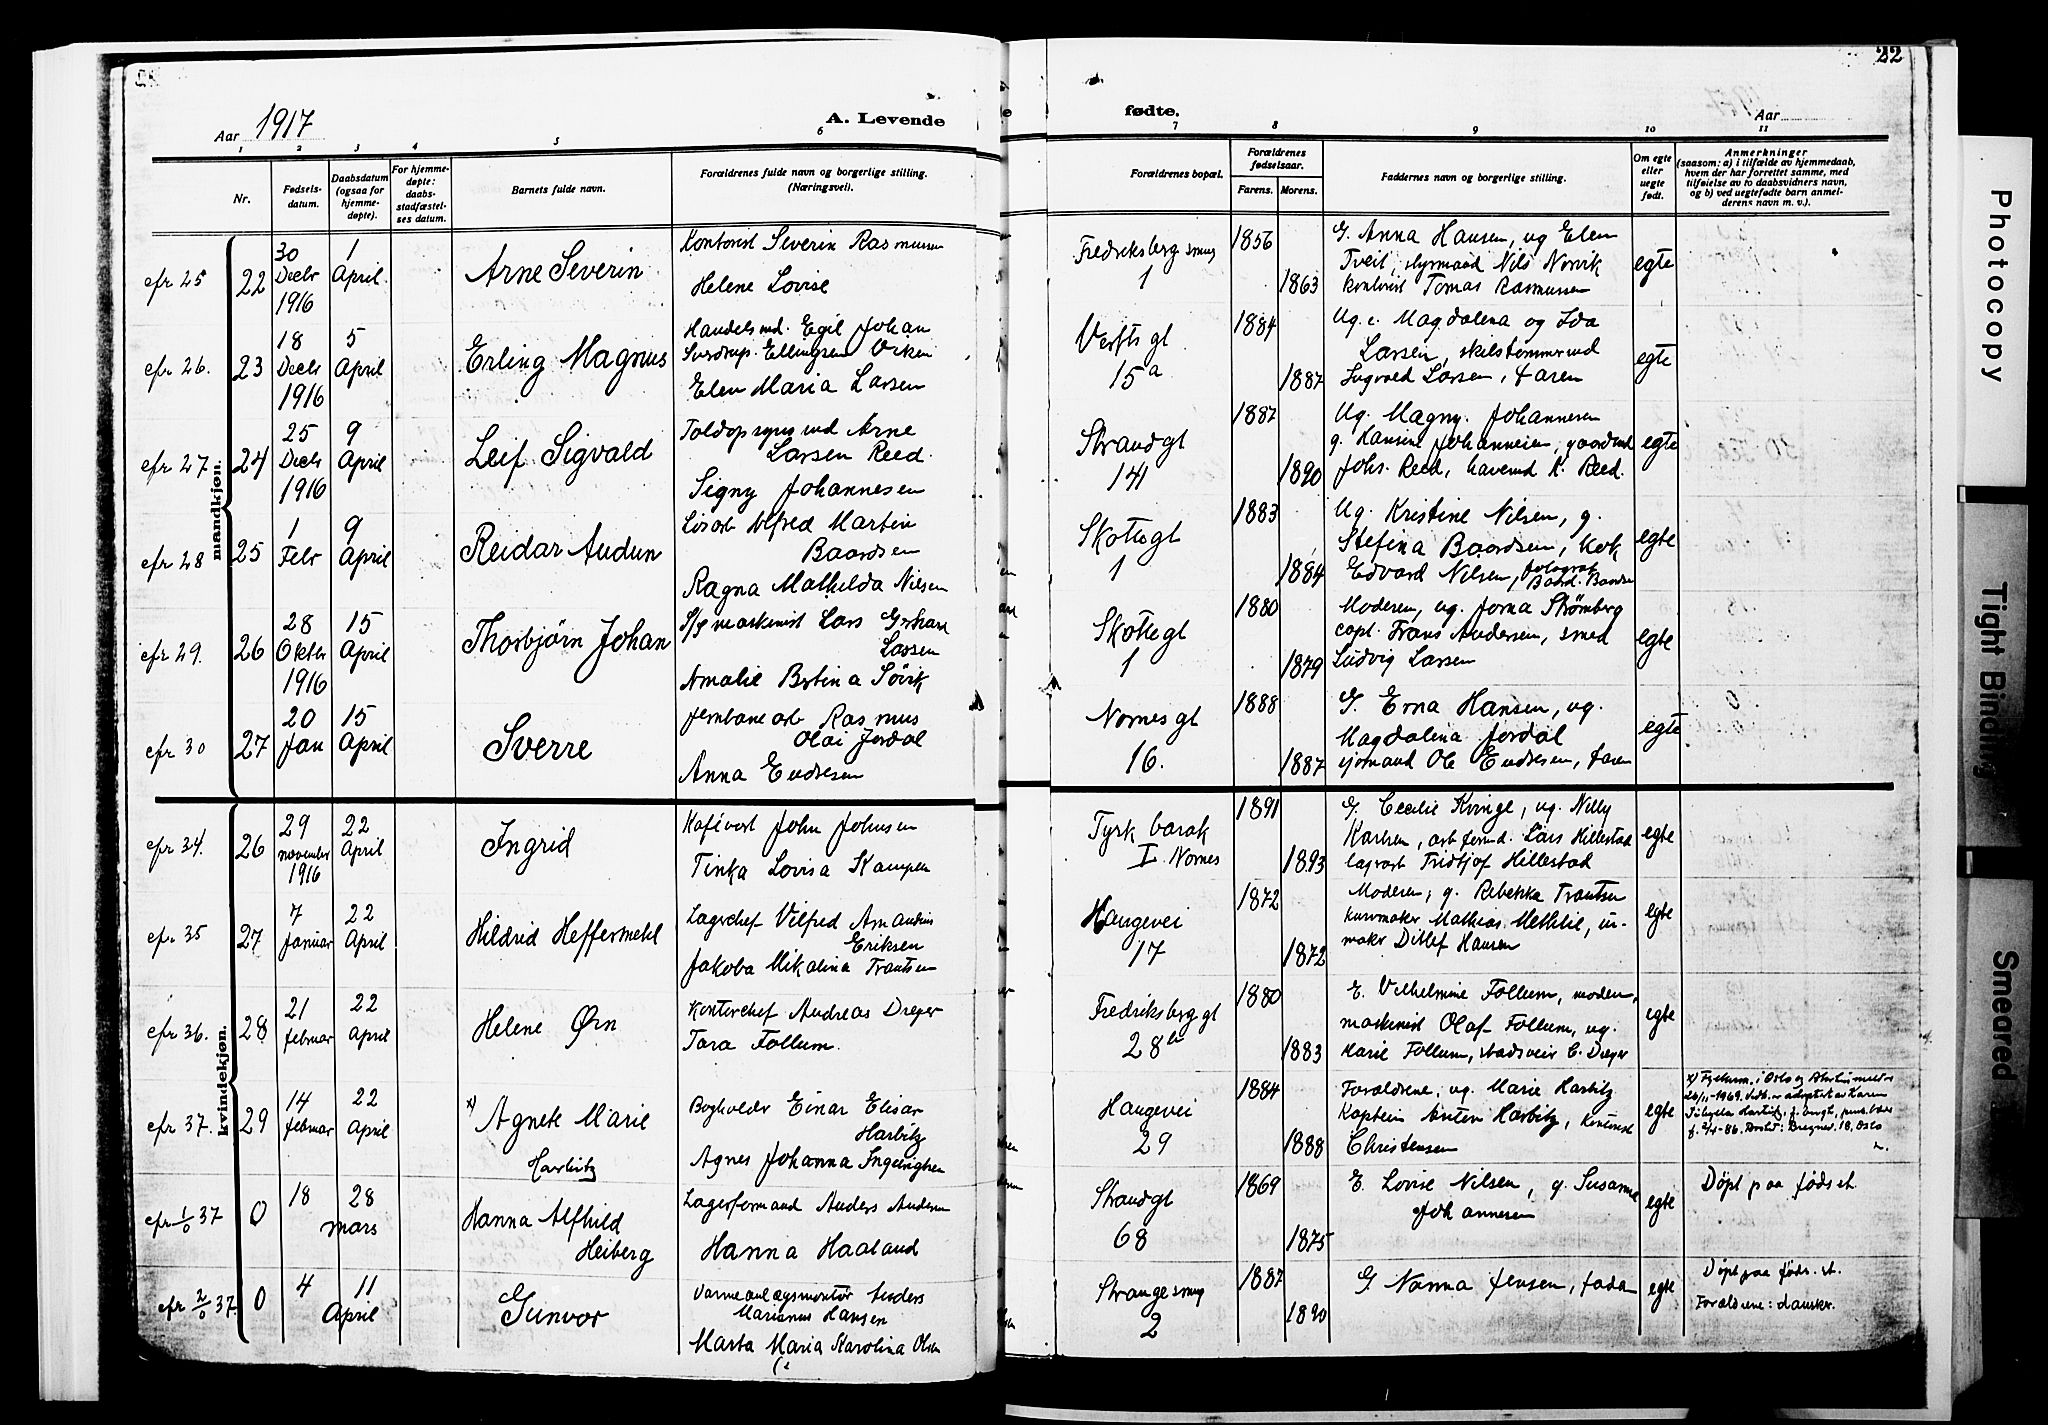 22
Aar 1917
A. Levende
fødte.
Aar
1 2 3 4 5 6 7 8 9 10 11
Nr.
Fødsels-
datum.
Daabsdatum
(ogsaa for
hjemme-
døpte).
For hjemme-
døpte:
daabs-
stadfæstel-
ses datum.
Barnets fulde navn.
Forældrenes fulde navn og borgerlige stilling.
(Næringsvei).
Forældrenes bopæl.
Forældrenes
fødselsaar.
Farens. Morens.
Faddernes navn og borgerlige stilling.
Om egte
eller
uegte
født.
Anmerkninger
(saasom: a) i tilfælde av hjemmedaab,
hvem der har forrettet samme, med
tilføielse av to daabsvidners navn,
og b) ved uegtefødte barn anmel-
derens navn m. v.).
mandkjøn.
cfr 25 22
30 Decbr 1916
1 April
Arne Severin
Kontorist Severin Rasmussen
Helene Lovise
Fredriksberg smug
1
1856
1863
G. Anna Hansen, ug Elen
Tveit, styrmand Nils Norvik
kontorist Tomas Rasmussen
egte
cfr 26. 23
18 Decbr 1916
5 April
Erling Magnus
Handelsmd. Egil Johan
Ellingsen Viken
Elen Maria Larsen
Verfts gt
15a
1884
1887
Ug. c. Magdalena og Ida
Larsen, skibstømmermd
Ingvald Larsen, faren
egte
cfr 27. 24
25 Decbr 1916
9 April
Leif Sigvald
Toldopsynsmd Arne
Larsen Reed.
Signy Johannesen
Strandgt
141
1887
1890
Ug. Magny. Johannesen
g. Hansine Johannesen, gaardmd
Johs. Reed, havnemd K. Reed.
egte
cfr 28 25
1 Febr
9 April
Reidar Audun
Alfred Martin
Baardsen
Ragna Mathilda Nilsen
Skottegt
1
1883
1884
Ug. Kristine Nilsen, g.
Stefina Baardsen, kok
Edvard Nilsen, fotograf
egte
cfr 29. 26
28 Oktbr 1916
15 April
Thorbjørn Johan
S/s maskinist Lars Gerhard
Larsen
Amalie Bertina Sørvik
Skottegt
1
1880
1879
Moderen, ug. Jorna Strømberg
capt. Frans Andersen, smed
Ludvig Larsen
egte
cfr 30 27
20 Jan
15 April
Sverre
Jernbanearb Rasmus
Olai Jordal
Anna Endresen
Nornesgt
16.
1888
1887
G. Erna Hansen, ug.
Magdalena Jordal
sjømand Ole Endresen, faren
egte
kvindekjøn.
cfr 34. 26
29 november 1916
22 April
Ingrid
Kafévert John Johnsen
Tinka Lovisa Kampen
Tysk barak
I. Nornes
1891
1893
G. Cecilie Kvinge, ug. Nilly
Karlsen, arb formd. Lars Hillestad
lagerarb Fridtjof Hillestad
egte
cfr 35 27
7 Januar
22 April
Hildrid Heffermehl
Lagerchef Vilfred Amandius
Eriksen
Jakoba Mikalina Frantsen
Haugevei
17
1872
1872
Moderen, g. Rebekka Frantsen
kurvmaker Mathias Methlie, ur-
maker Ditlef Hansen
egte
cfr 36. 28
21 februar
22 April
Helene Ørn
Kontorchef Andreas Dreyer
Tara Follum.
Fredriksberg gt
28b
1880
1883
E. Vilhelmine Follum, moderen,
maskinist Olaf Follum, ug.
Marie Follum, stadsveier C. Dreyer
egte
cfr 37. 29
14 februar
22 April
x) Agnete Marie
Harbitz
Bogholder Einar Elisar
Harbitz
Agnes Johanna Ingebrigtsen
Haugevei
29
1884
1888
Forældrene, ug. Marie Harbitz
Kaptein Anton Harbitz, kontorist
Christensen
egte
cfr 1/0 37 0
18 28
mars
Hanna Alfhild
Heiberg
Lagerformand Anders Andersen
Hanna Haaland
Strandgt
68
1869
1875
E. Lovise Nilsen, g. Susanne
Johannesen
egte
Døpt paa fødsst.
cfr 2/0 37. 0
4 11
April
Gunvor
Varmeanlægsmontør Anders
Marianus Hansen
Marta Maria Karolina Olsen
Strangesmug
2
1887
1890
G. Nanna Jensen,
egte
Døpt paa føds. st.
Forældrene: dansker.
Photocopy
Tight Binding
Smeared